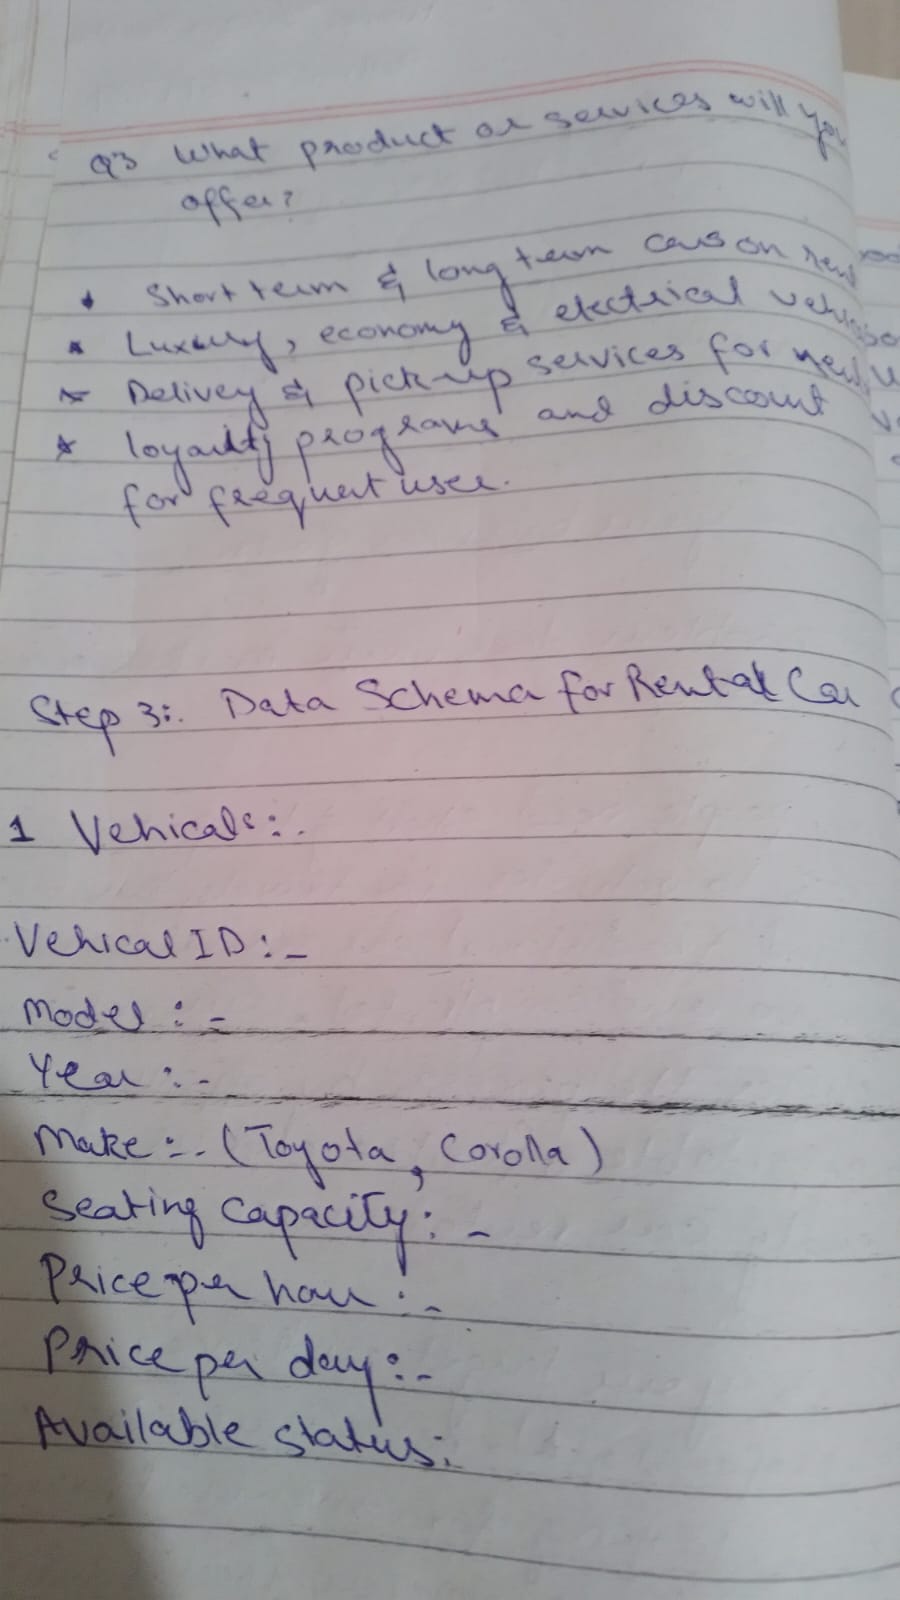 Q3 What product or services will you
offer?
Short term & long term cars on rent
Luxury, economy & electrical
Delivey & pick-up services for
loyalty programs and discount
for frequent user.
Step 3:. Data Schema for Rental Car
1 Vehicals:.
Vehical ID :-
Model : -
Year : -
Make :-. (Toyota, Corolla)
Seating capacity: -
Price per hour :-
Price per day :-
Available status: